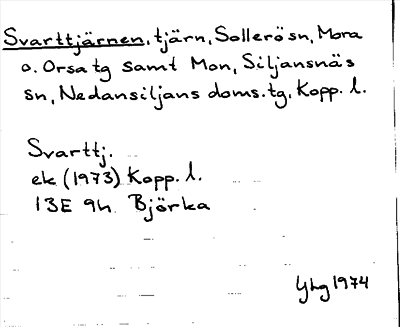 Svarttjärnen, tjärn, Sollerö sn, Mora
o. Orsa tg samt Mon, Siljansnäs
sn, Nedansiljans doms.tg, Kopp. l.
Svarttj.
ek (1973) Kopp. l.
13E 9h Björka
Yhg 1974